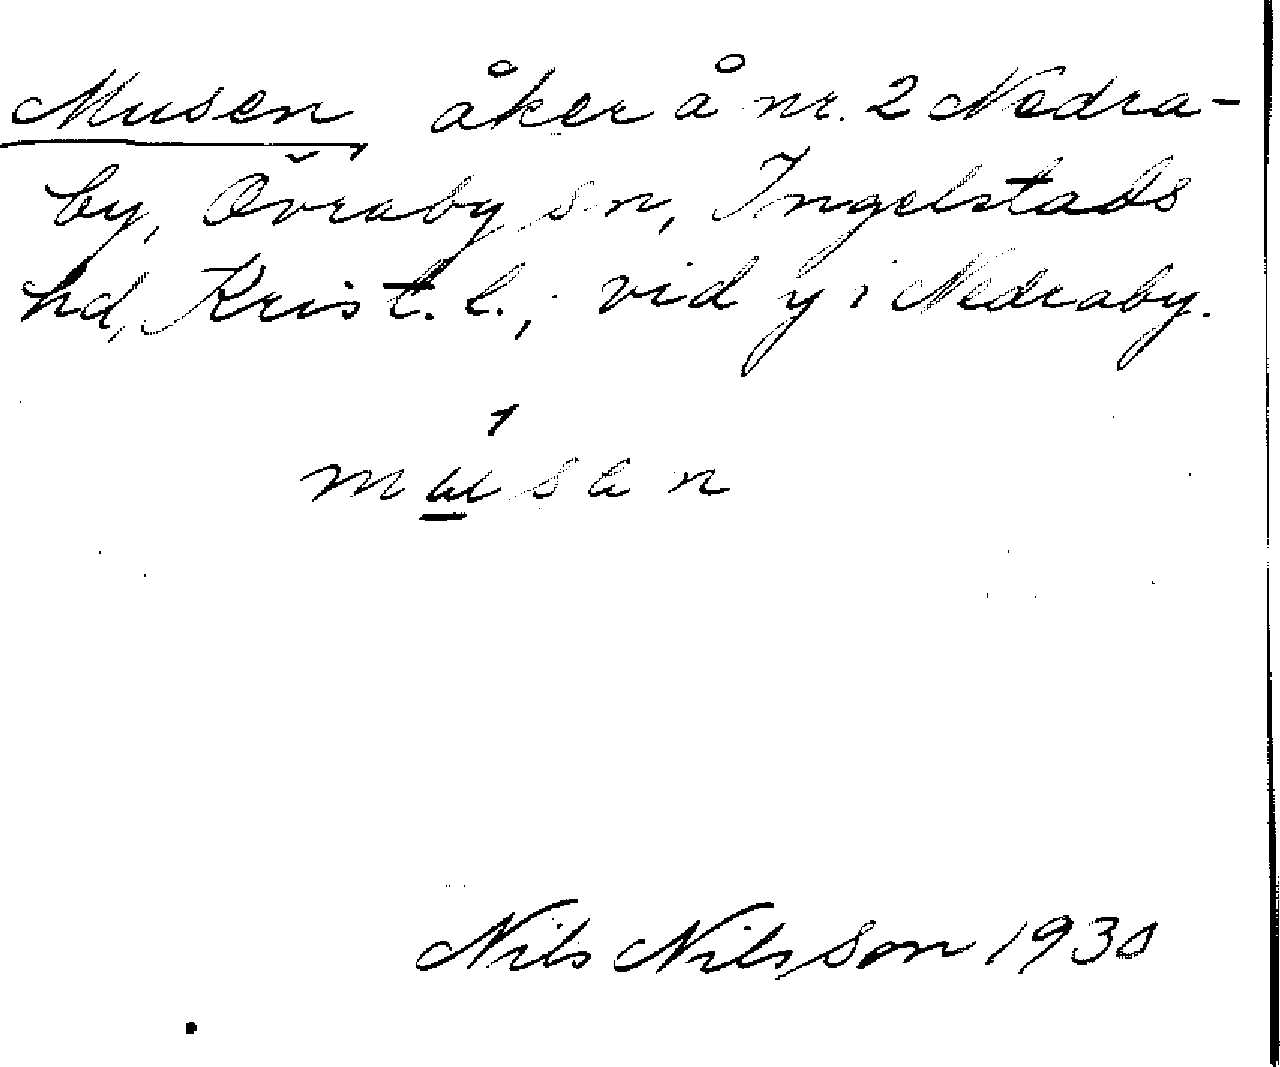 Musen åker å nr. 2 Nedra-
by, Övraby sn, Ingelstads
hd, Krist. l., vid y i Nedraby.
Nils Nilsson 1930